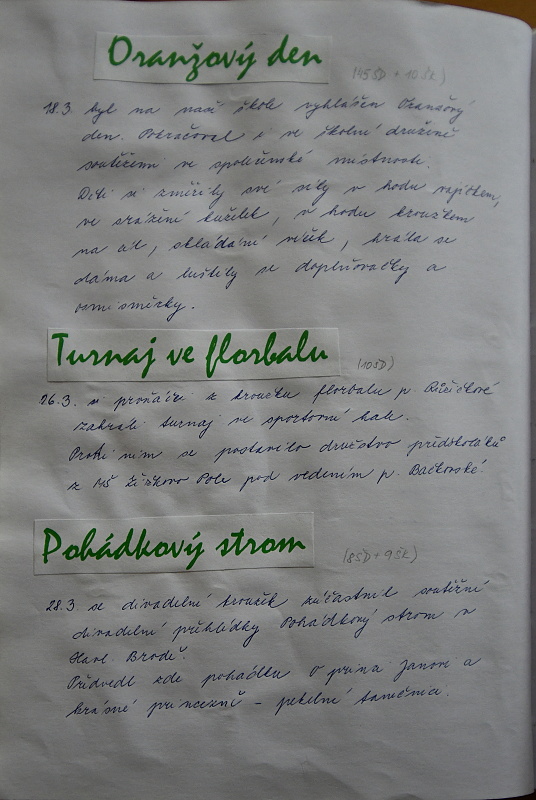 Oranžový den (45ŠD + 10ŠK)
18.3. byl na naší škole vyhlášen Oranžový
den. Pokračoval i ve školní družině
soutěžemi ve společenské místnosti.
Děti si změřily své síly v hodu
ve srážení kuželek, v hodu kroužkem
na cíl, skládání víček, hrála se
dáma a luštily se doplňovačky a
osmisměrky.
Turnaj ve florbalu (10ŠD)
26.3. si prvňáčci z kroužku florbalu p. Růžičkové
zahráli turnaj ve sportovní hale.
Proti nim se postavilo družstvo předškoláků
z MŠ Žižkovo Pole pod vedením p. Bačkovské.
Pohádkový strom (8ŠD + 9ŠK)
28.3 se divadelní kroužek zúčastnil soutěžní
divadelní přehlídky Pohádkový strom v
Havl. Brodě.
Předvedl zde pohádku O Janovi a
krásné princezně – pekelné tanečnici.